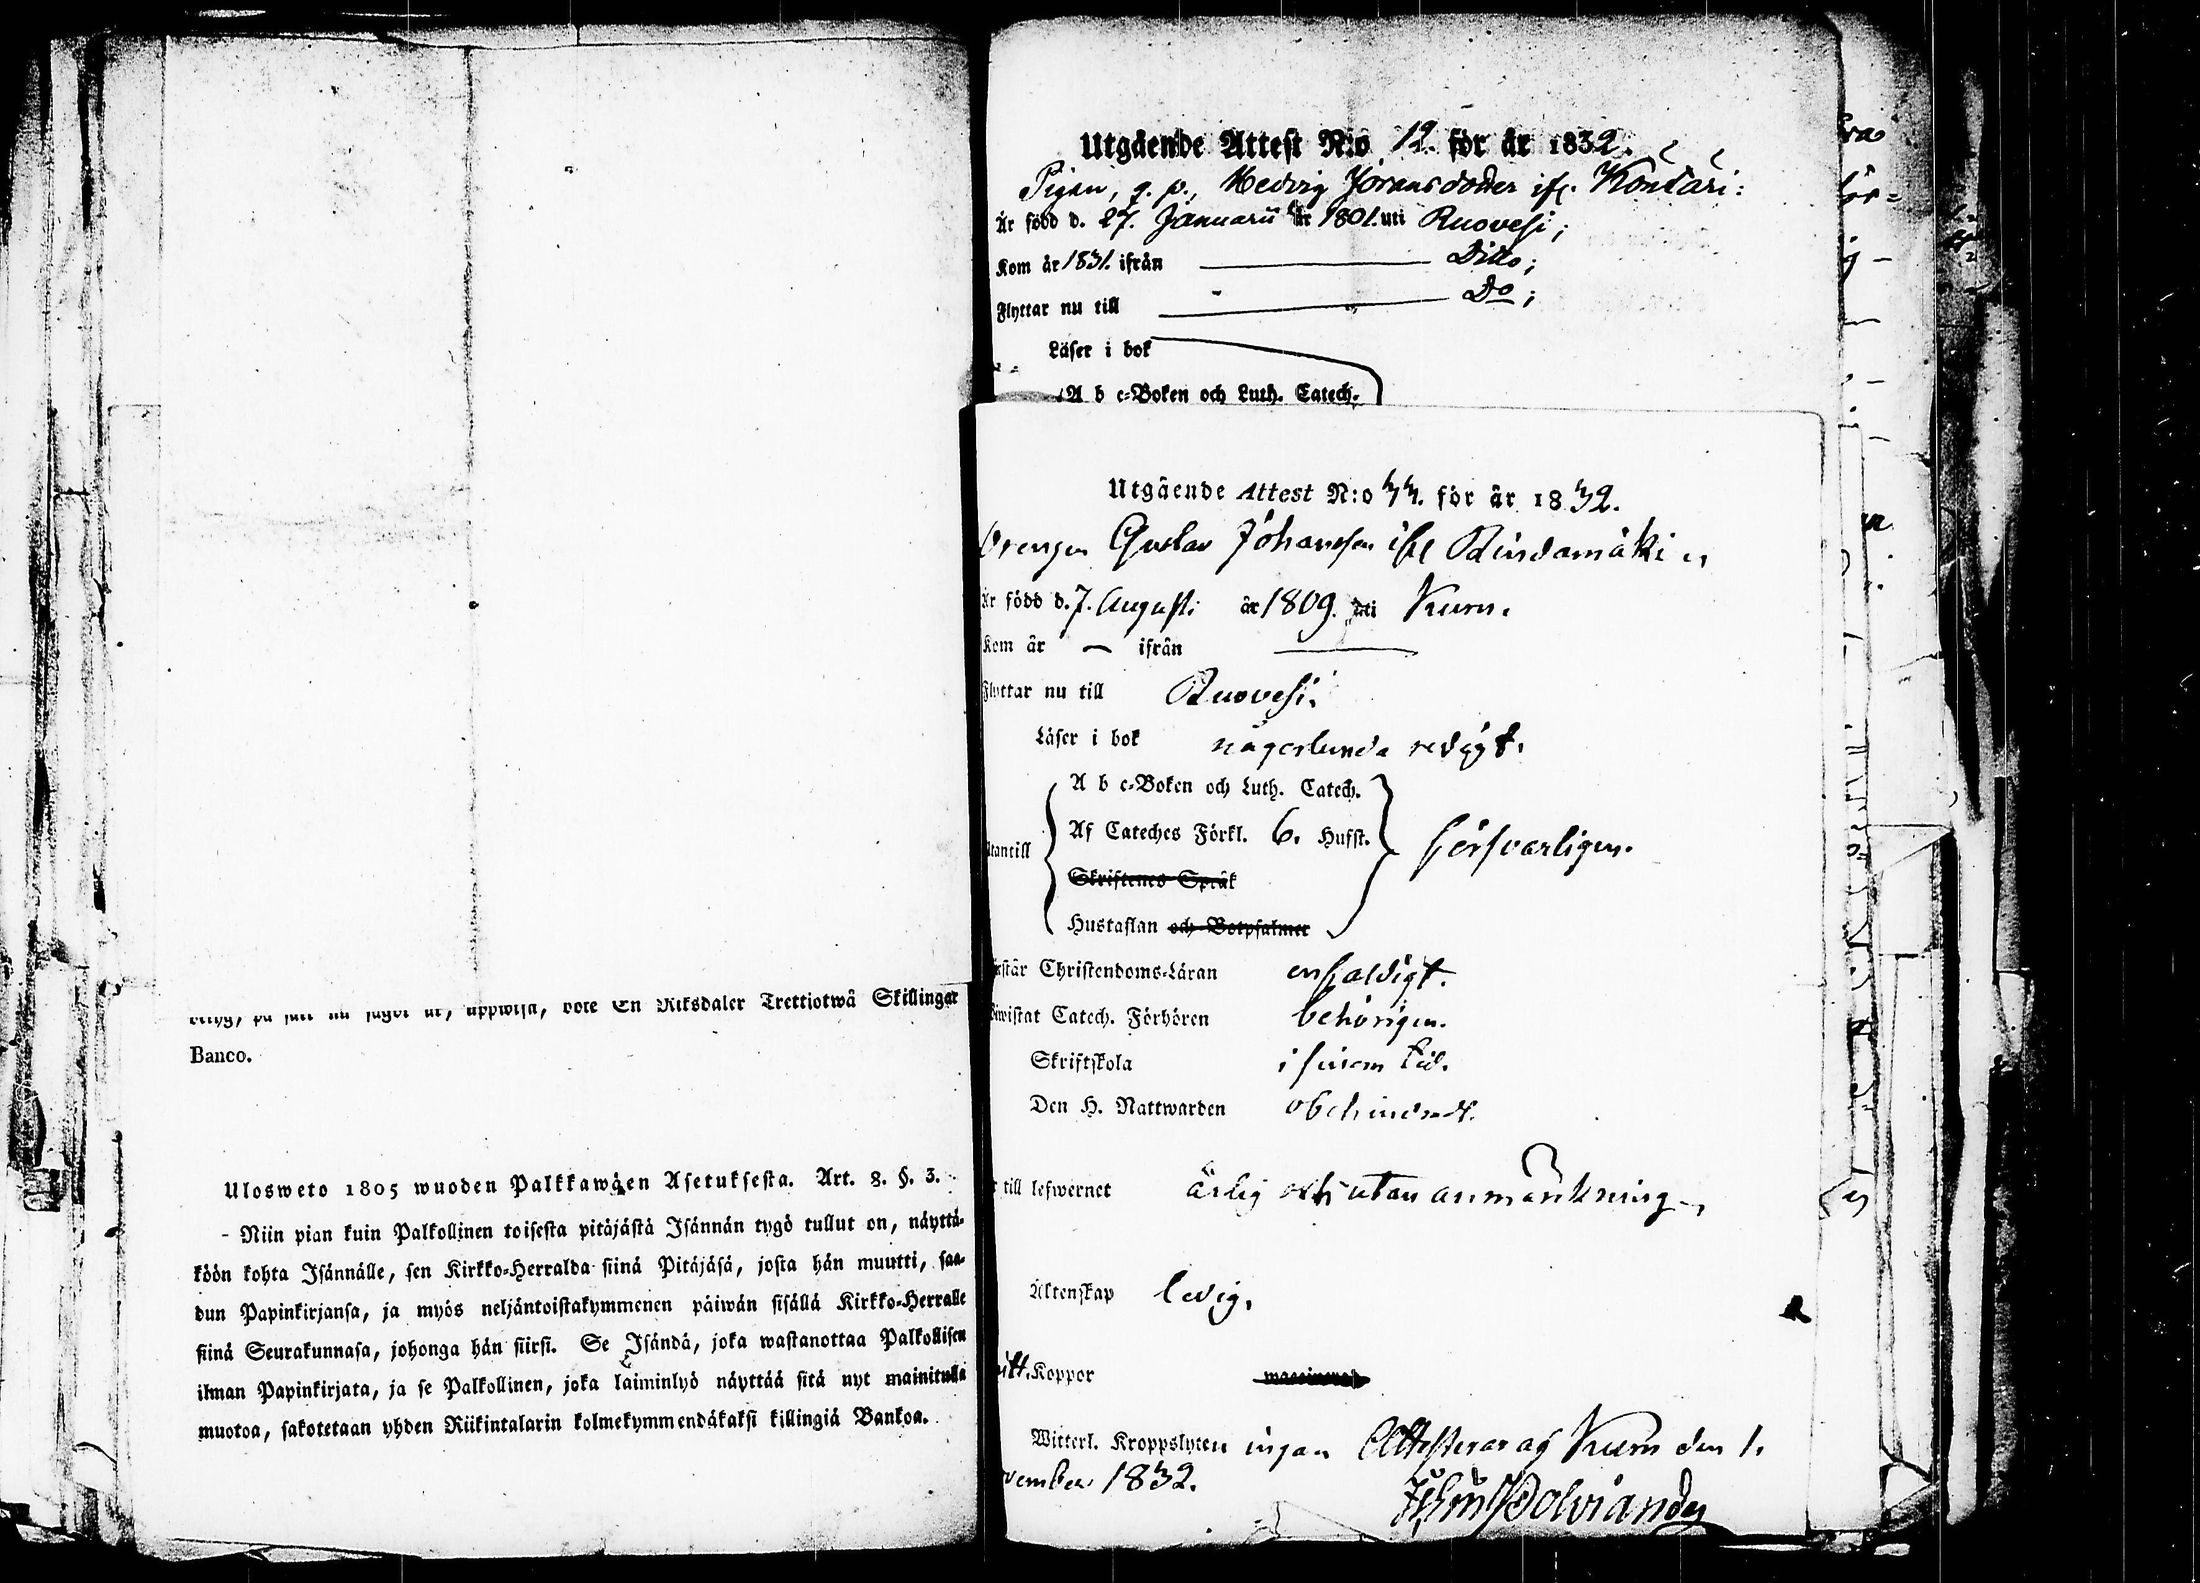 betyg, på sätt nu sagdt är, uppwisa, böte En Riksdaler Trettiotwå Skillingar
Banco.
Ulosweto 1805 wuoden Palkkawäen Asetuksesta. Art. 8. §. 3.
- Niin pian kuin Palkollinen toisesta pitäjästä Isännän tygö tullut on, näyttä-
köön kohta Isännälle, sen Kirkko-Herralda siinä Pitäjäsä, josta hän muutti, saa-
dun Papinkirjansa, ja myös neljäntoistakymmenen päiwän sisällä Kirkko-Herralle
siinä Seurakunnasa, johonga hän siirsi. Se Isändä, joka wastanottaa Palkollisen
ilman Papinkirjata, ja se Palkollinen, joka laiminlyö näyttää sitä nyt mainitulla
muotoa, sakotetaan yhden Riikintalarin kolmekymmendäkaksi killingiä Bankoa.
Utgående Attest N:o 12. för år 1832.
Pigan, q. p., Hedvig Jöransdotter ifr. Köntäri:
Är född d. 27. Januarii år 1801. uti Ruovesi;
Kom år 1831. ifrån Ditto;
Flyttar nu till Do;
Läser i bok
A b c-Boken och Luth. Catech.
Utgående Attest N:o 33. för år 1832.
Drengen Gustav Johansson ifrl Rindamäki
Är född d. 7. Augusti år 1809. uti Kuru.
Kom år — ifrån
Flyttar nu till Ruovesi.
Läser i bok någorlunda redigt.
A b c-Boken och Luth. Catech.
Af Cateches Förkl. 6. Hufst.
Utantill försvarligen.
Skriftenes Språk
Hustaflan och Botpsalmer
Förstår Christendoms-Läran enfaldigt.
Bewistat Catech. Förhören behörigen.
Skriftskola i sinom tid.
Den H. Nattwarden obehindradt.
är till lefwernet ärlig och utan anmärkning
Äktenskap ledig.
haft. Koppor
Witterl. Kroppslyten ingen Attesterar af Kuru den 1.
vember 1832.